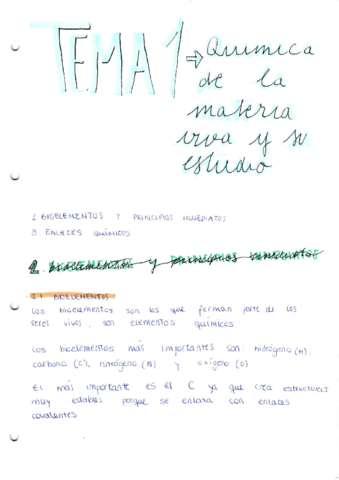 TEMA 1 ⇒ Quimica
de la
materia
viva y su
estudio
2. BIOELEMENTOS Y PRINCIPIOS INMEDIATOS
3. ENLACES QUÍMICOS
2. bioelementos y principios inmediatos
2.1. BIOELEMENTOS
Los bioelementos son los que forman parte de los
seres vivos, son elementos químicos.
Los bioelementos más importantes son: hidrógeno (H),
carbono (C), nitrógeno (N) y oxígeno (O)
El más importante es el C ya que crea estructuras
muy estables porque se enlaza con enlaces
covalentes